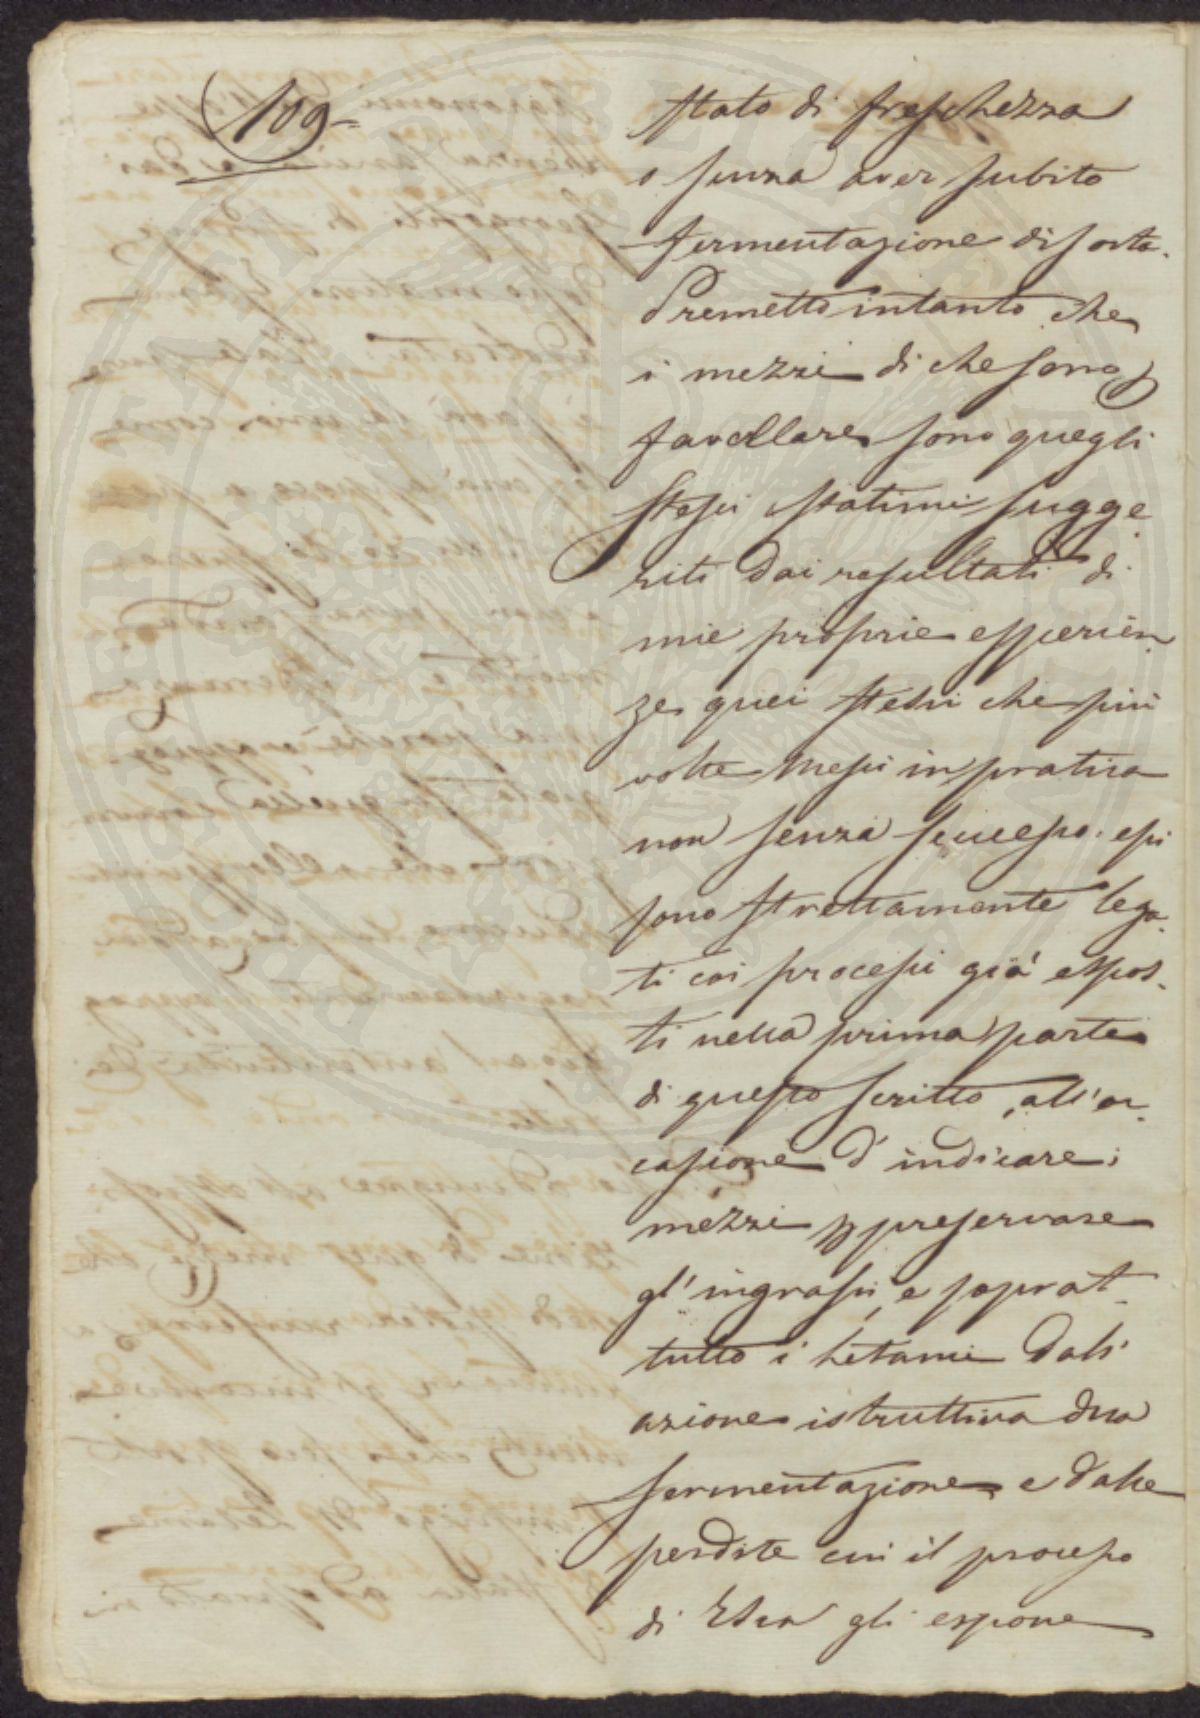 109
stato di freschezza
o senza aver subito
fermentazione di sorta.
Premetto intanto che
i mezzi di che sono p
favellare sono quegli
stessi statimi sugge
riti dai resultati di
mie proprie esperien
ze quei stessi che più
volte messi in pratica
non senza successo. essi
sono strettamente lega
ti coi processi già espos
ti nella prima parte
di questo scritto, all'oc
casione d'indicare i
mezzi p preservare
gl'ingrassi, e soprat
tutto i letami dall'
azione istruttiva della
fermentazione e dalle
perdite cui il processo
di gli espone